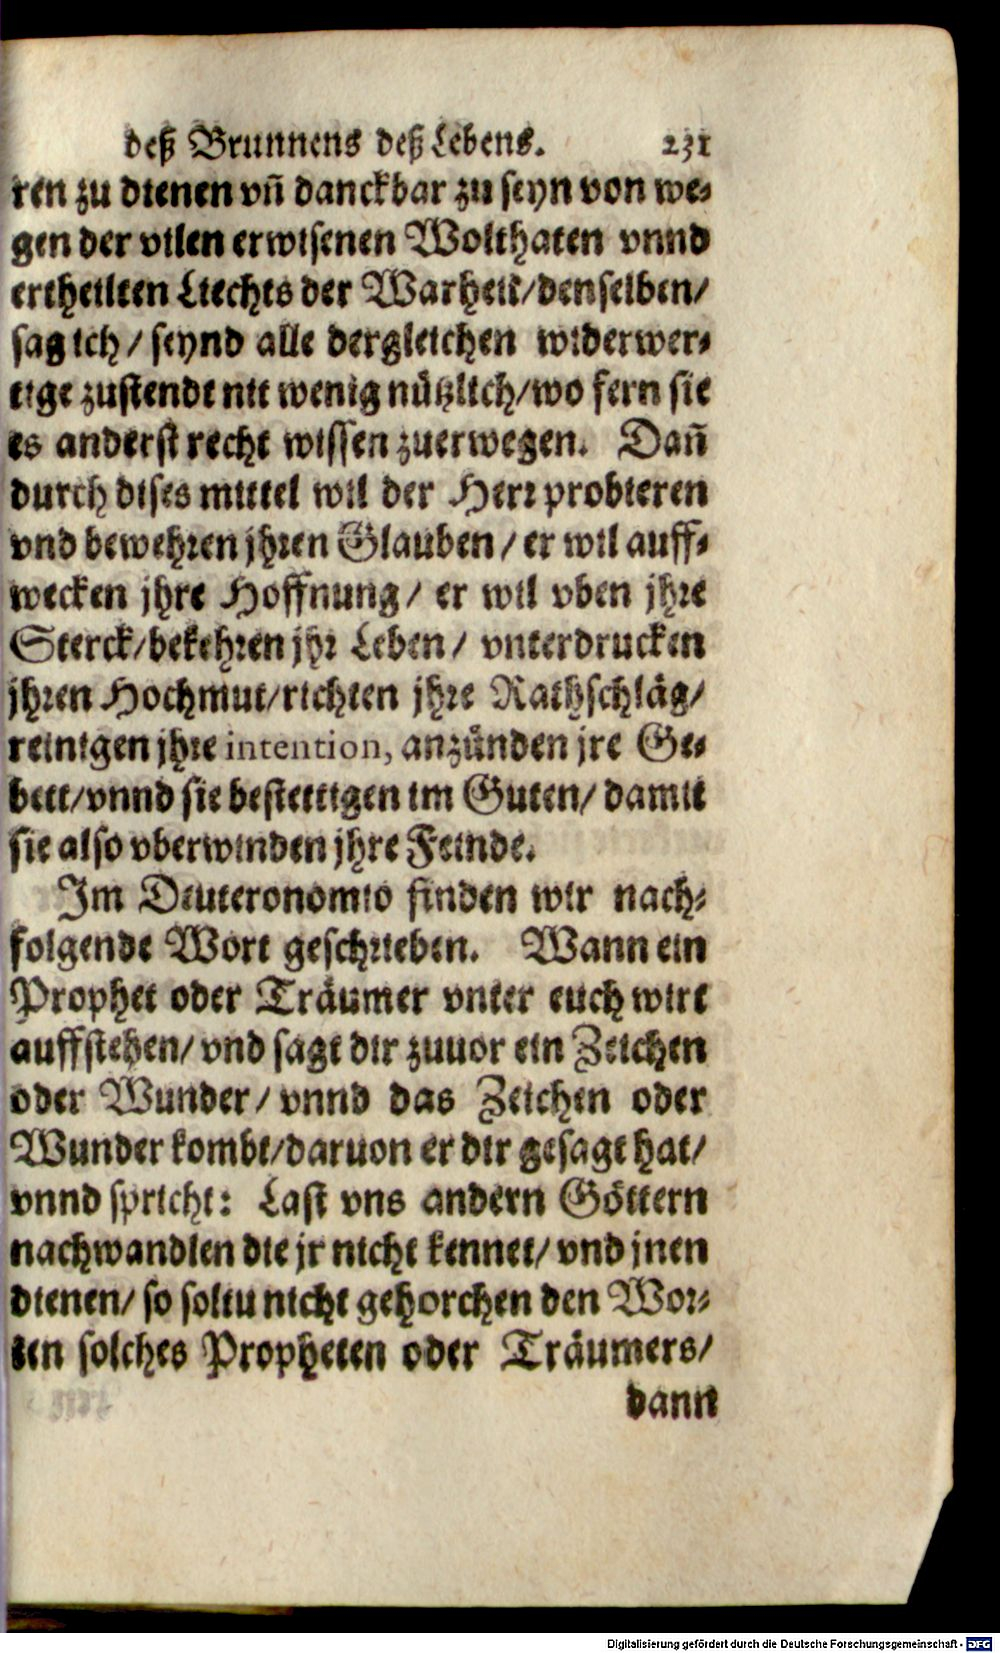 deß Brunnens deß Lebens. 231
ren zu dienen vñ danckbar zu seyn von we-
gen der vilen erwisenen Wolthaten vnnd
ertheilten Liechts der Warheit/denselben/
sag ich/ seynd alle dergleichen widerwer-
tige zustende nit wenig nützlich/wo fern sie
es anderst recht wissen zuerwegen. Dañ
durch dises mittel wil der Herr probieren
vnd bewehren jhren Glauben/ er wil auff-
wecken jhre Hoffnung/ er wil vben jhre
Sterck/bekehren jhr Leben/ vnterdrucken
jhren Hochmut/richten jhre Rathschläg/
reinigen jhre intention, anzünden jre Ge-
bett/vnnd sie bestettigen im Guten/ damit
sie also vberwinden jhre Feinde.
Im Deuteronomio finden wir nach-
folgende Wort geschrieben. Wann ein
Prophet oder Träumer vnter euch wirt
auffstehen/ vnd sagt dir zuuor ein Zeichen
oder Wunder/ vnnd das Zeichen oder
Wunder kombt/daruon er dir gesagt hat/
vnnd spricht: Last vns andern Göttern
nachwandlen die jr nicht kennet/ vnd jnen
dienen/ so soltu nicht gehorchen den Wor-
ten solches Propheten oder Träumers/
dann
Digitalisierung gefördert durch die Deutsche Forschungsgemeinschaft - DFG